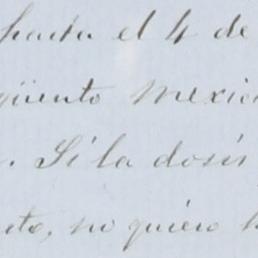 hasta el 4 de
güento Mexic
. Si la dosis
to, no quiero